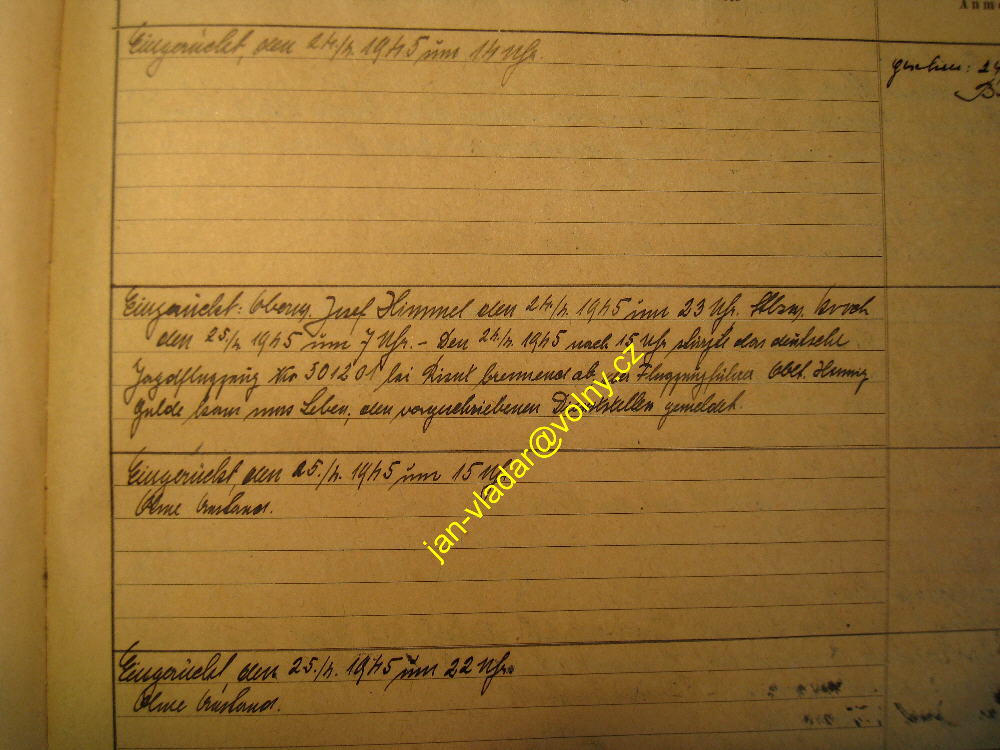 Anm
Eingerückt, den 24./4. 1945 um 14 Uhr.
gesehen: 24
Eingerückt: Oberw. Josef Himmel den 24./4. 1945 um 23 Uhr.
den 25./4. 1945 um 7 Uhr. – Den 24./4. 1945 nach 15 Uhr stürzte das deutsche
Jagdflugzeug No 501201 bei brennend ab, der Flugzeugführer Oblt. Hennig
Gulde kam ums Leben, den vorgeschriebenen Dienststellen gemeldet.
Eingerückt den 25./4. 1945 um 15 Uhr
Ohne Anstand.
Eingerückt, den 25./4. 1945 um 22 Uhr.
Ohne Anstand.
jan-vladar@volny.cz